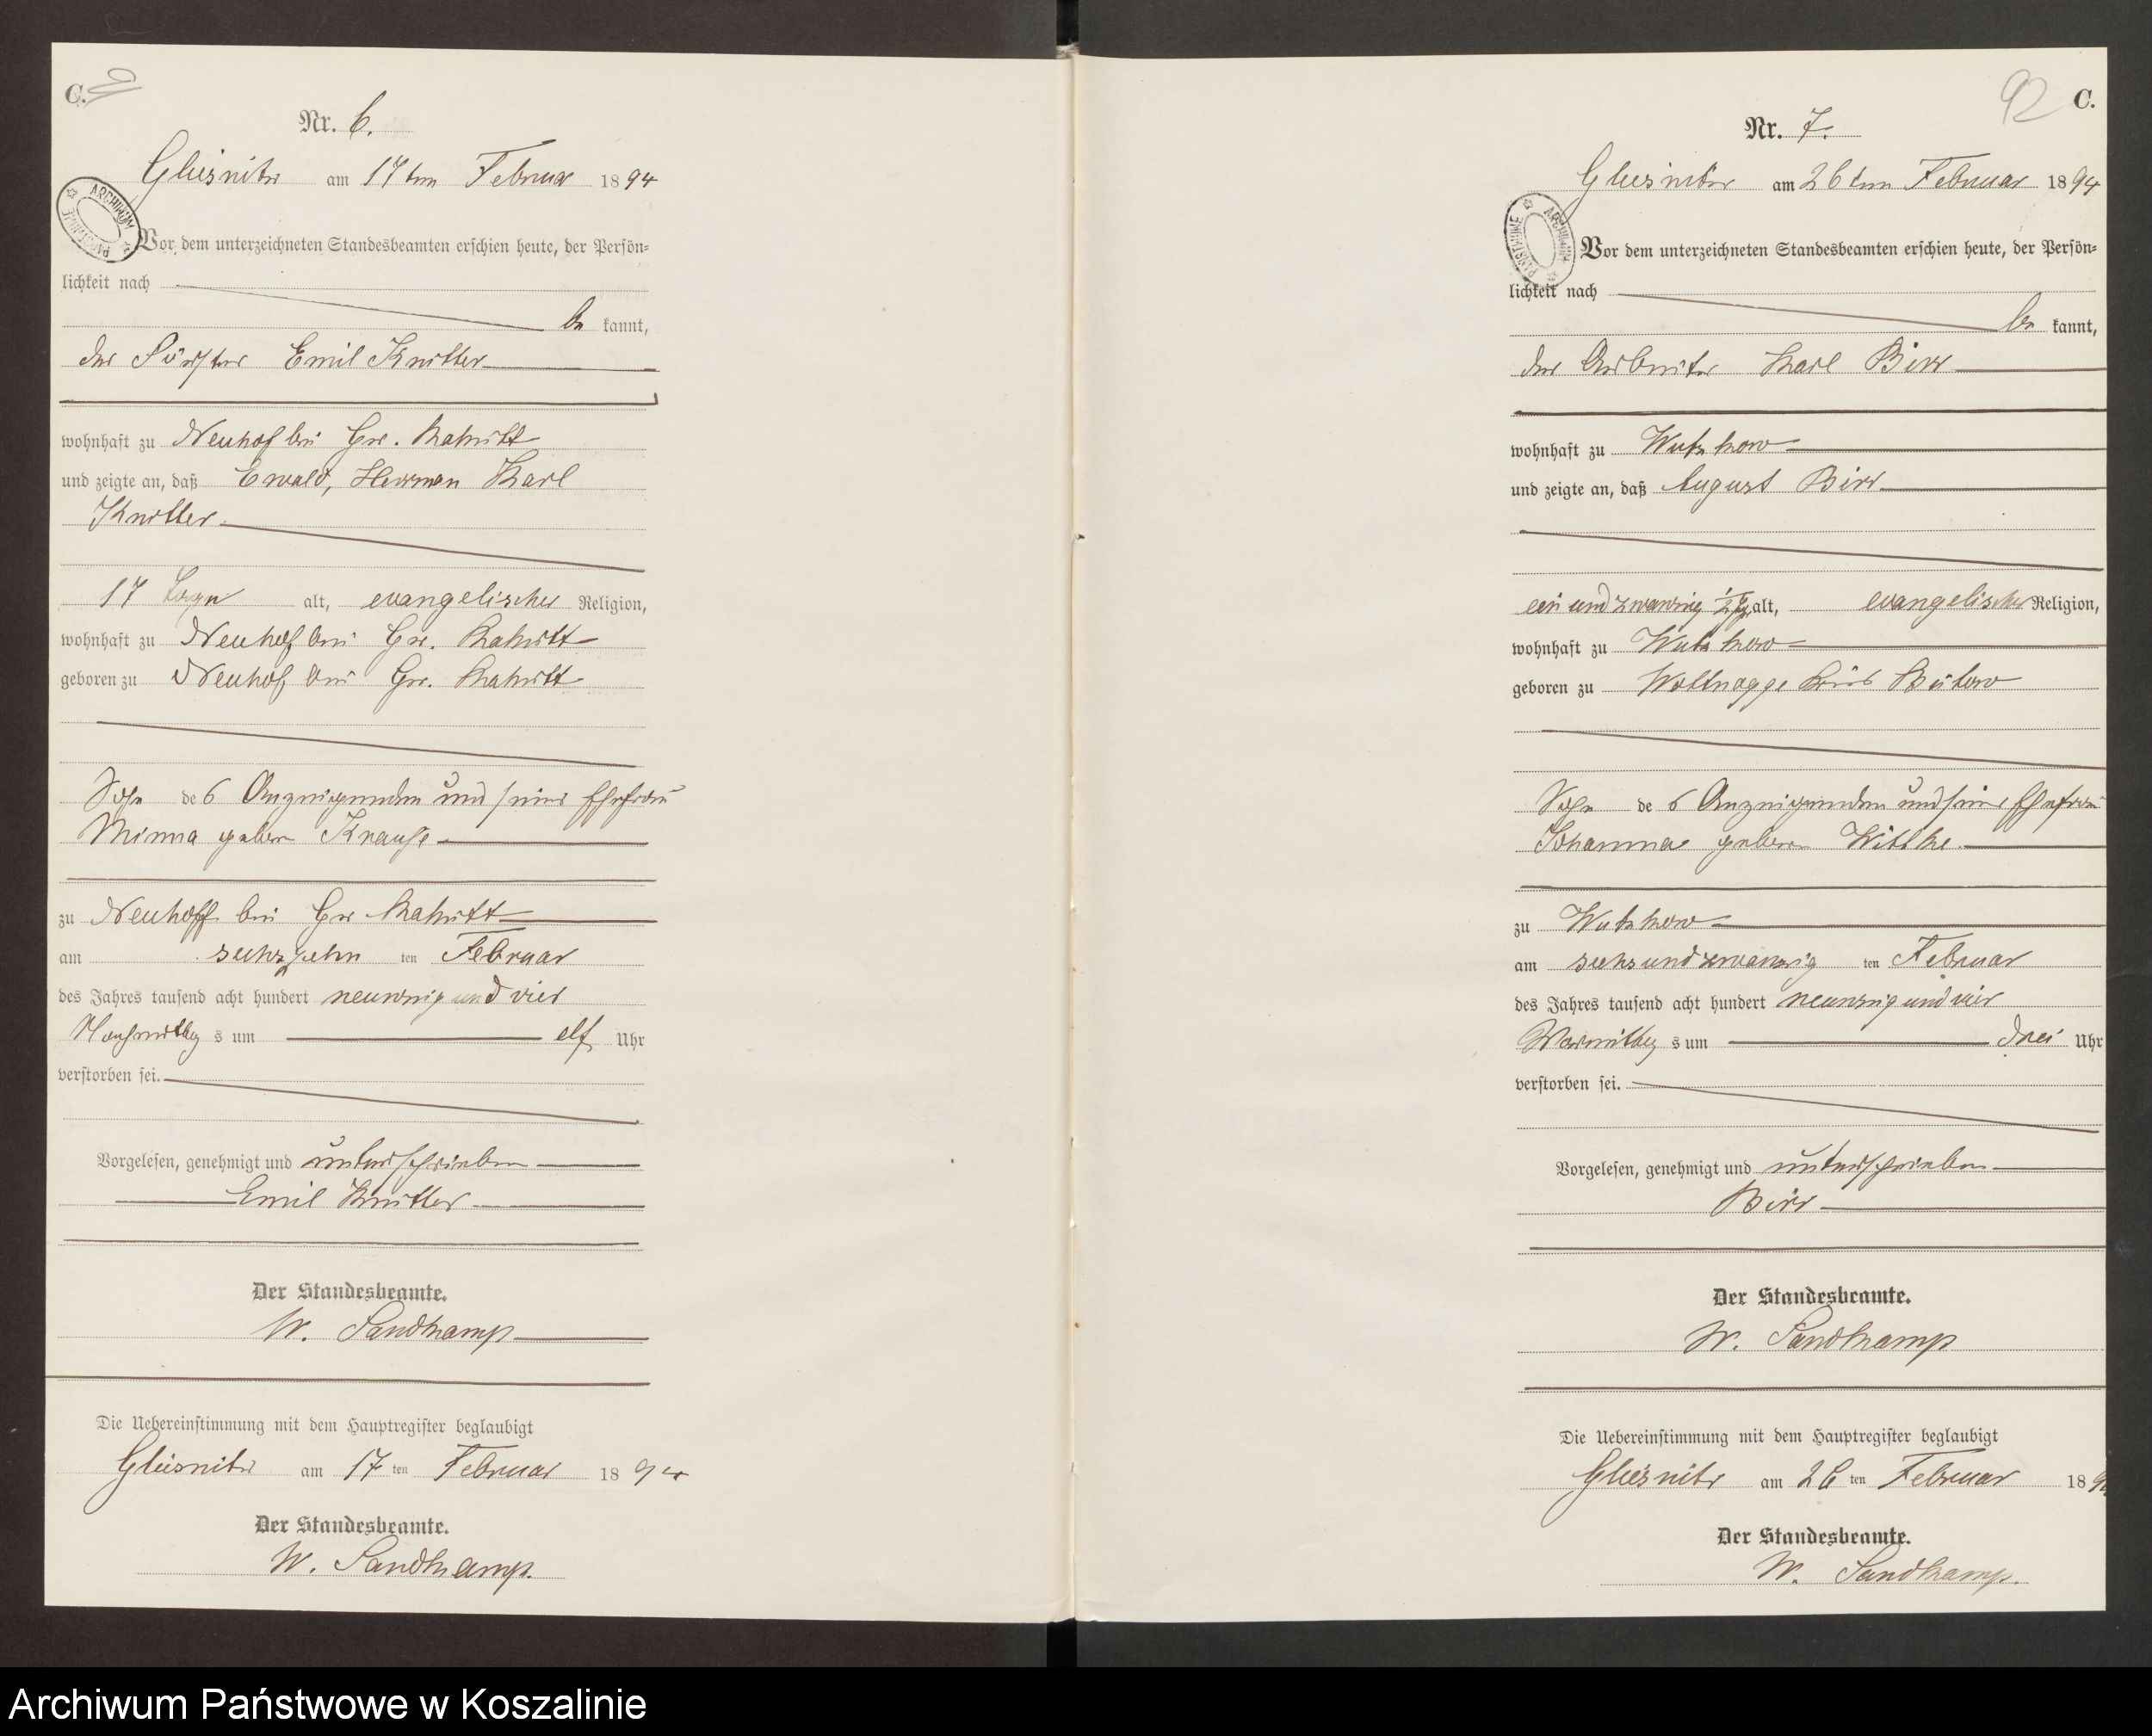 C.
Nr. 6.
am 17ten Februar 1894
ARCHIWUM PAŃSTWOWE
Vor dem unterzeichneten Standesbeamten erschien heute, der Persön-
lichkeit nach
be kannt,
der Förster Emil Knitter
wohnhaft zu Neuhof bei Gr.
und zeigte an, daß Ewald, Herrman Karl
Knitter
17 Tage alt, evangelischer Religion,
wohnhaft zu Neuhof bei Gr.
geboren zu Neuhof bei Gr.
Sohn des Anzeigenden und seiner Ehefrau
Minna geboren Krause
zu Neuhoff bei Gr
am sechszehn ten Februar
des Jahres tausend acht hundert neunzig und vier
Nachmittag s um elf Uhr
verstorben sei.
Vorgelesen, genehmigt und unterschrieben
Emil Knitter
Der Standesbeamte.
W. Sandkamp
Die Uebereinstimmung mit dem Hauptregister beglaubigt
am 17 ten Februar 1894
Der Standesbeamte.
W. Sandkamp.
92 C.
Nr. 7.
am 26ten Februar 1894
ARCHIWUM PAŃSTWOWE
Vor dem unterzeichneten Standesbeamten erschien heute, der Persön-
lichkeit nach
be kannt,
der Arbeiter Karl Birr
wohnhaft zu Wutzkow
und zeigte an, daß August Birr
ein und zwanzig alt, evangelischer Religion,
wohnhaft zu Wutzkow
geboren zu Kreis Bütow
Sohn des Anzeigenden und seiner Ehefrau
Johanna geboren Wittke
zu Wutzkow
am sechsundzwanzig ten Februar
des Jahres tausend acht hundert neunzig und vier
Vormittag s um drei Uhr
verstorben sei.
Vorgelesen, genehmigt und unterschrieben
Birr
Der Standesbeamte.
W. Sandkamp
Die Uebereinstimmung mit dem Hauptregister beglaubigt
am 26 ten Februar 189
Der Standesbeamte.
W. Sandkamp.
Archiwum Państwowe w Koszalinie